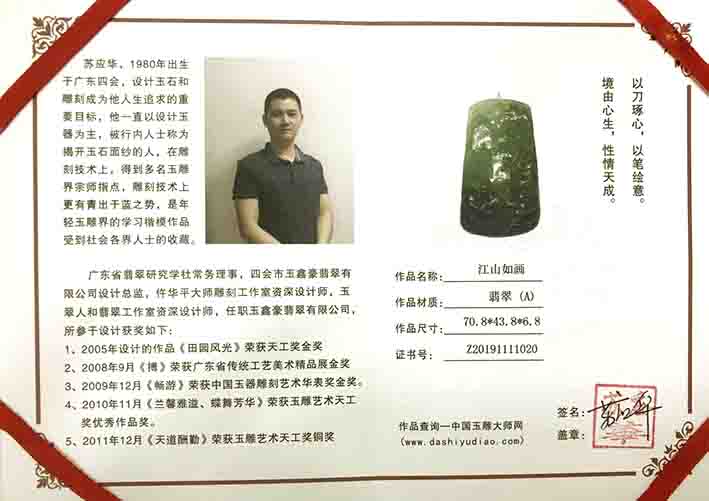 苏应华，1980年出生
于广东四会，设计玉石和
雕刻成为他人生追求的重
要目标，他一直以设计玉
器为主，被行内人士称为
揭开玉石面纱的人，在雕
刻技术上，得到多名玉雕
界宗师指点，雕刻技术上
更有青出于蓝之势，是年
轻玉雕界的学习楷模作品
受到社会各界人士的收藏。
广东省翡翠研究学社常务理事，四会市玉鑫豪翡翠有
限公司设计总监，仵华平大师雕刻工作室资深设计师，玉
翠人和翡翠工作室资深设计师，任职玉鑫豪翡翠有限公司，
所参于设计获奖如下：
1、2005年设计的作品《田园风光》荣获天工奖金奖
2、2008年9月《搏》荣获广东省传统工艺美术精品展金奖
3、2009年12月《畅游》荣获中国玉器雕刻艺术华表奖金奖。
4、2010年11月《兰馨雅溢、蝶舞芳华》荣获玉雕艺术天工
奖优秀作品奖。
5、2011年12月《天道酬勤》荣获玉雕艺术天工奖铜奖
以刀琢心，以笔绘意。
境由心生，性情天成。
作品名称：江山如画
作品材质：翡翠 (A)
作品尺寸：70.8*43.8*6.8
证书号：Z20191111020
签名：
盖章：
作品查询—中国玉雕大师网
(www.dashiyudiao.com)